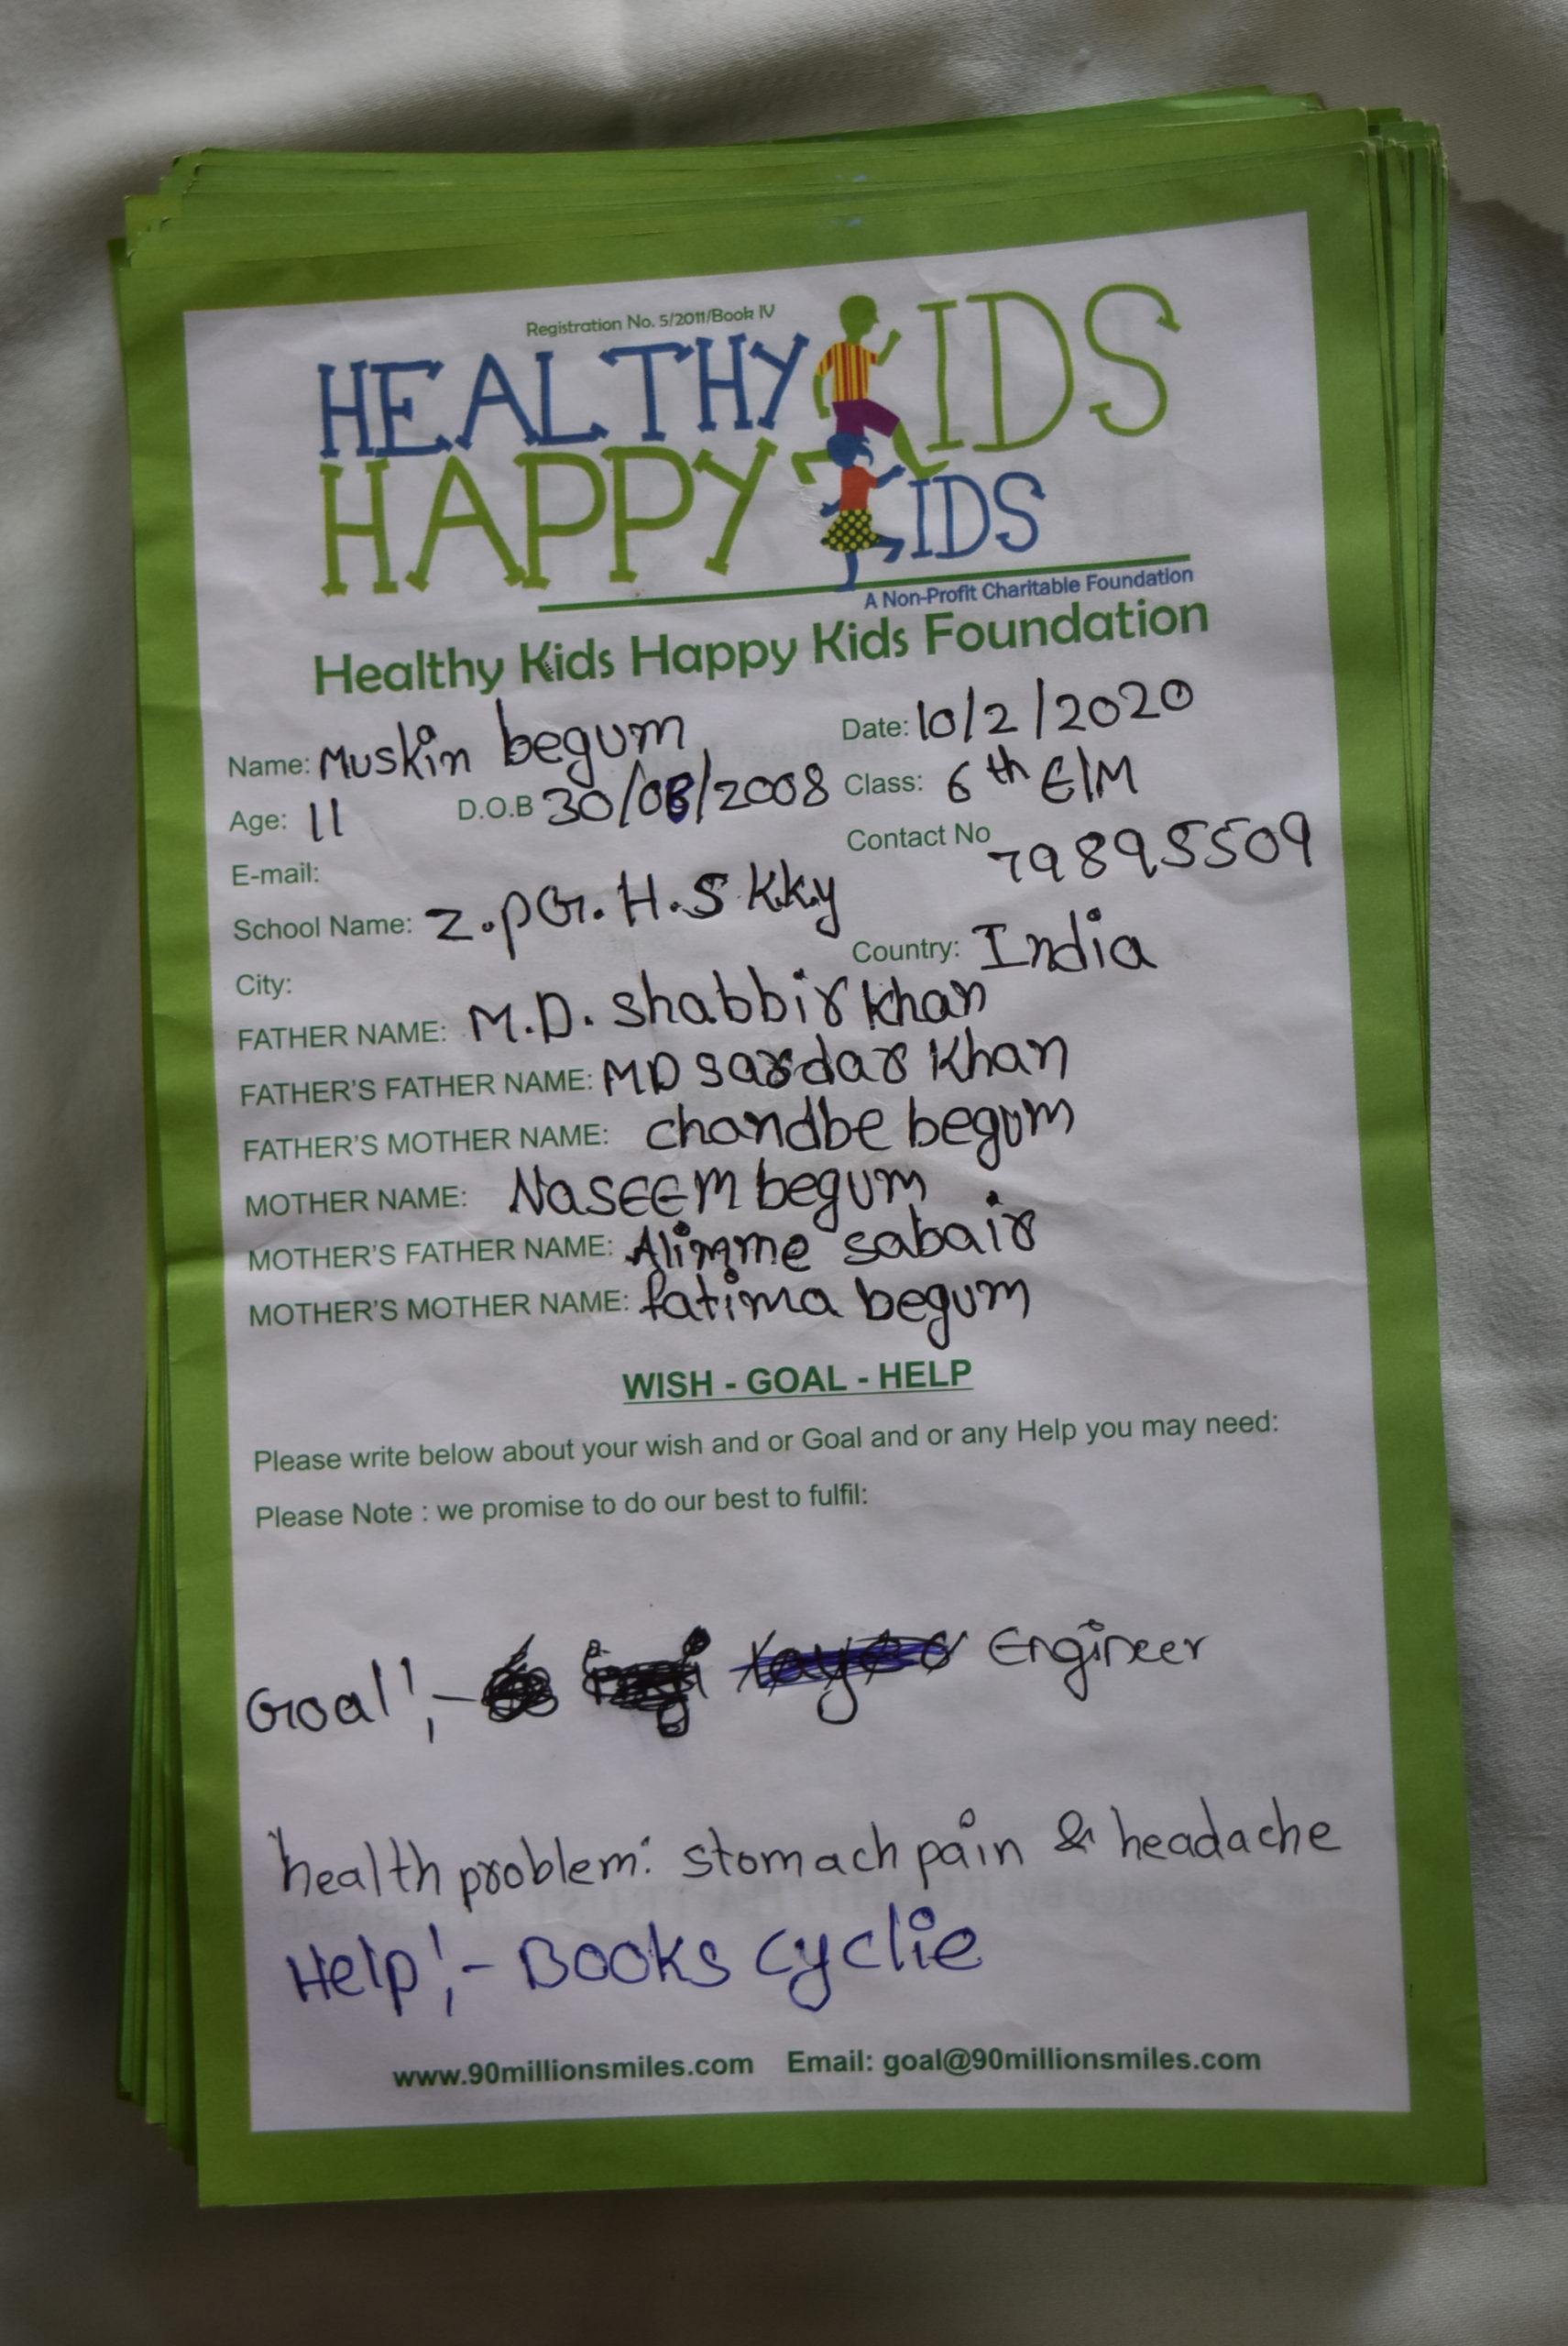 Registration No. 5/2011/Book IV
HEALTHY KIDS
HAPPY KIDS
A Non-Profit Charitable Foundation
Healthy Kids Happy Kids Foundation
Name: Muskin begum Date: 10/2/2020
Age: 11 D.O.B 30/08/2008 Class: 6th E/M
E-mail: Contact No 79895509
School Name: Z.PG.H.S K.K.y
City: Country: India
FATHER NAME: M.D. Shabbir Khan
FATHER'S FATHER NAME: MD Sardar Khan
FATHER'S MOTHER NAME: chandbe begum
MOTHER NAME: NaSEEM begum
MOTHER'S FATHER NAME: Alimme sabair
MOTHER'S MOTHER NAME: fatima begum
WISH - GOAL - HELP
Please write below about your wish and or Goal and or any Help you may need:
Please Note : we promise to do our best to fulfil:
Goal!,- Engineer
health problem: stomach pain & headache
Help!,- Books cyclie
www.90millionsmiles.com Email: goal@90millionsmiles.com